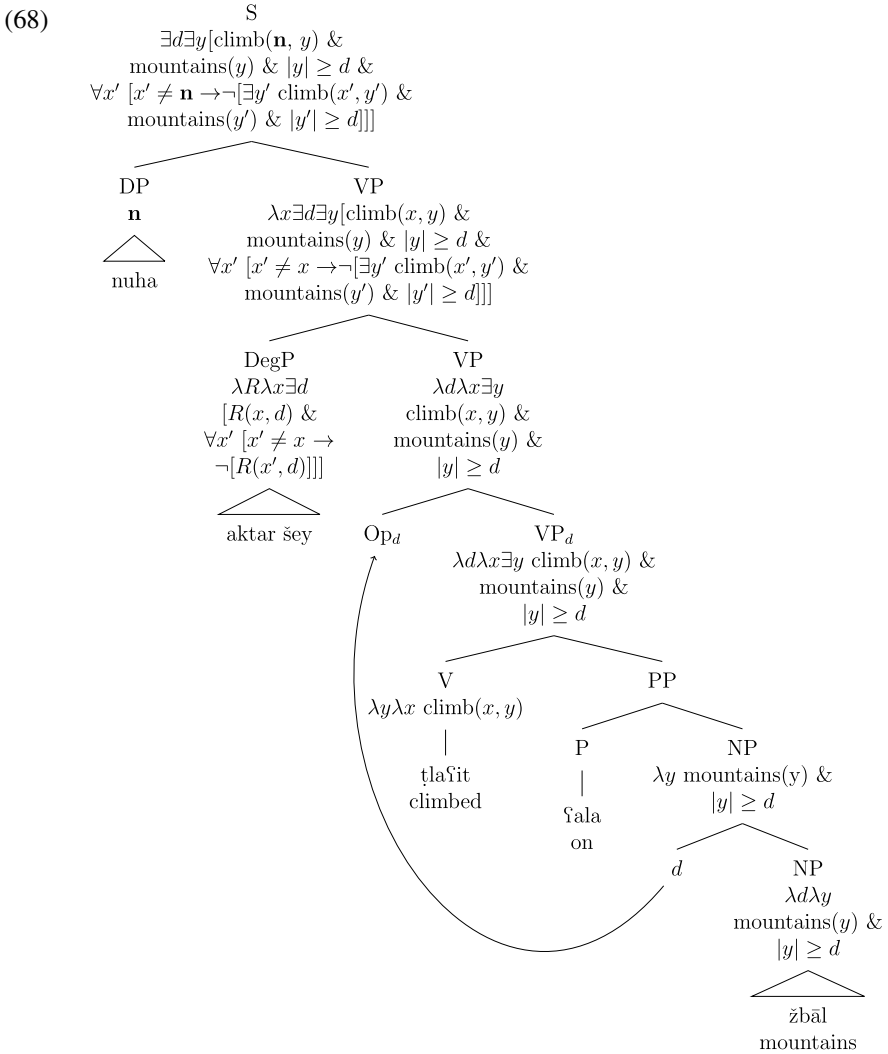 (68)
S
∃d∃y[climb(n, y) &
mountains(y) & |y| ≥ d &
∀x′ [x′ ≠ n →¬[∃y′ climb(x′, y′) &
mountains(y′) & |y′| ≥ d]]]
DP
n
nuha
VP
λx∃d∃y[climb(x, y) &
mountains(y) & |y| ≥ d &
∀x′ [x′ ≠ x →¬[∃y′ climb(x′, y′) &
mountains(y′) & |y′| ≥ d]]]
DegP
λRλx∃d
[R(x, d) &
∀x′ [x′ ≠ x →
¬[R(x′, d)]]]
aktar šey
VP
λdλx∃y
climb(x, y) &
mountains(y) &
|y| ≥ d
Op_d
VP_d
λdλx∃y climb(x, y) &
mountains(y) &
|y| ≥ d
V
λyλx climb(x, y)
ṭlaʕit
climbed
PP
P
ʕala
on
NP
λy mountains(y) &
|y| ≥ d
d
NP
λdλy
mountains(y) &
|y| ≥ d
žbāl
mountains